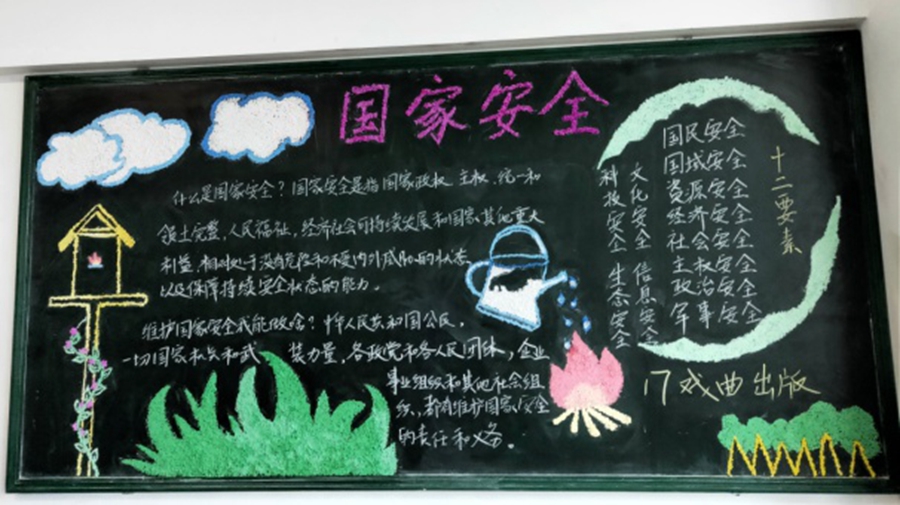 国家安全
什么是国家安全？国家安全是指国家政权、主权、统一和
领土完整、人民福祉、经济社会可持续发展和国家其他重大
利益相对处于没有危险和不受内外威胁的状态,
以及保障持续安全状态的能力。
维护国家安全我能做啥？中华人民共和国公民，
一切国家机关和武 装力量，各政党和各人民团体，企业
事业组织和其他社会组
织，都有维护国家安全
的责任和义务。
十二要素
国民安全
国域安全
资源安全
经济安全
社会安全
主权安全
政治安全
军事安全
文化安全 信息安全
科技安全 生态安全
17戏曲出版